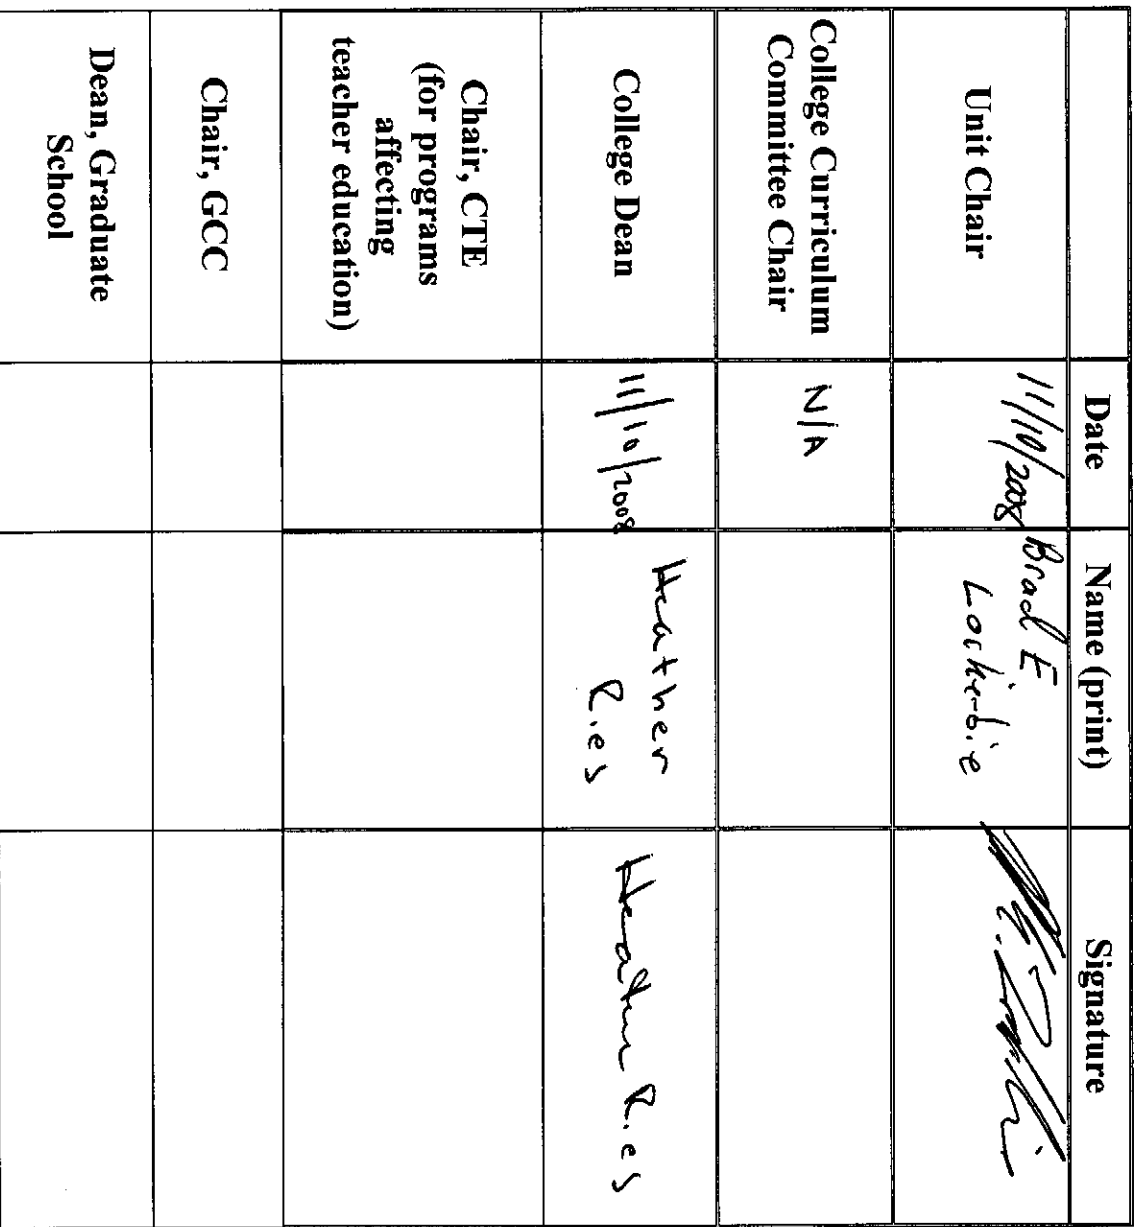 Date Name (print) Signature
Unit Chair 11/10/2008 Brad E
Lockerbie
College Curriculum
Committee Chair N/A
College Dean 11/10/2008 Heather
Ries Heather Ries
Chair, CTE
(for programs
affecting
teacher education)
Chair, GCC
Dean, Graduate
School